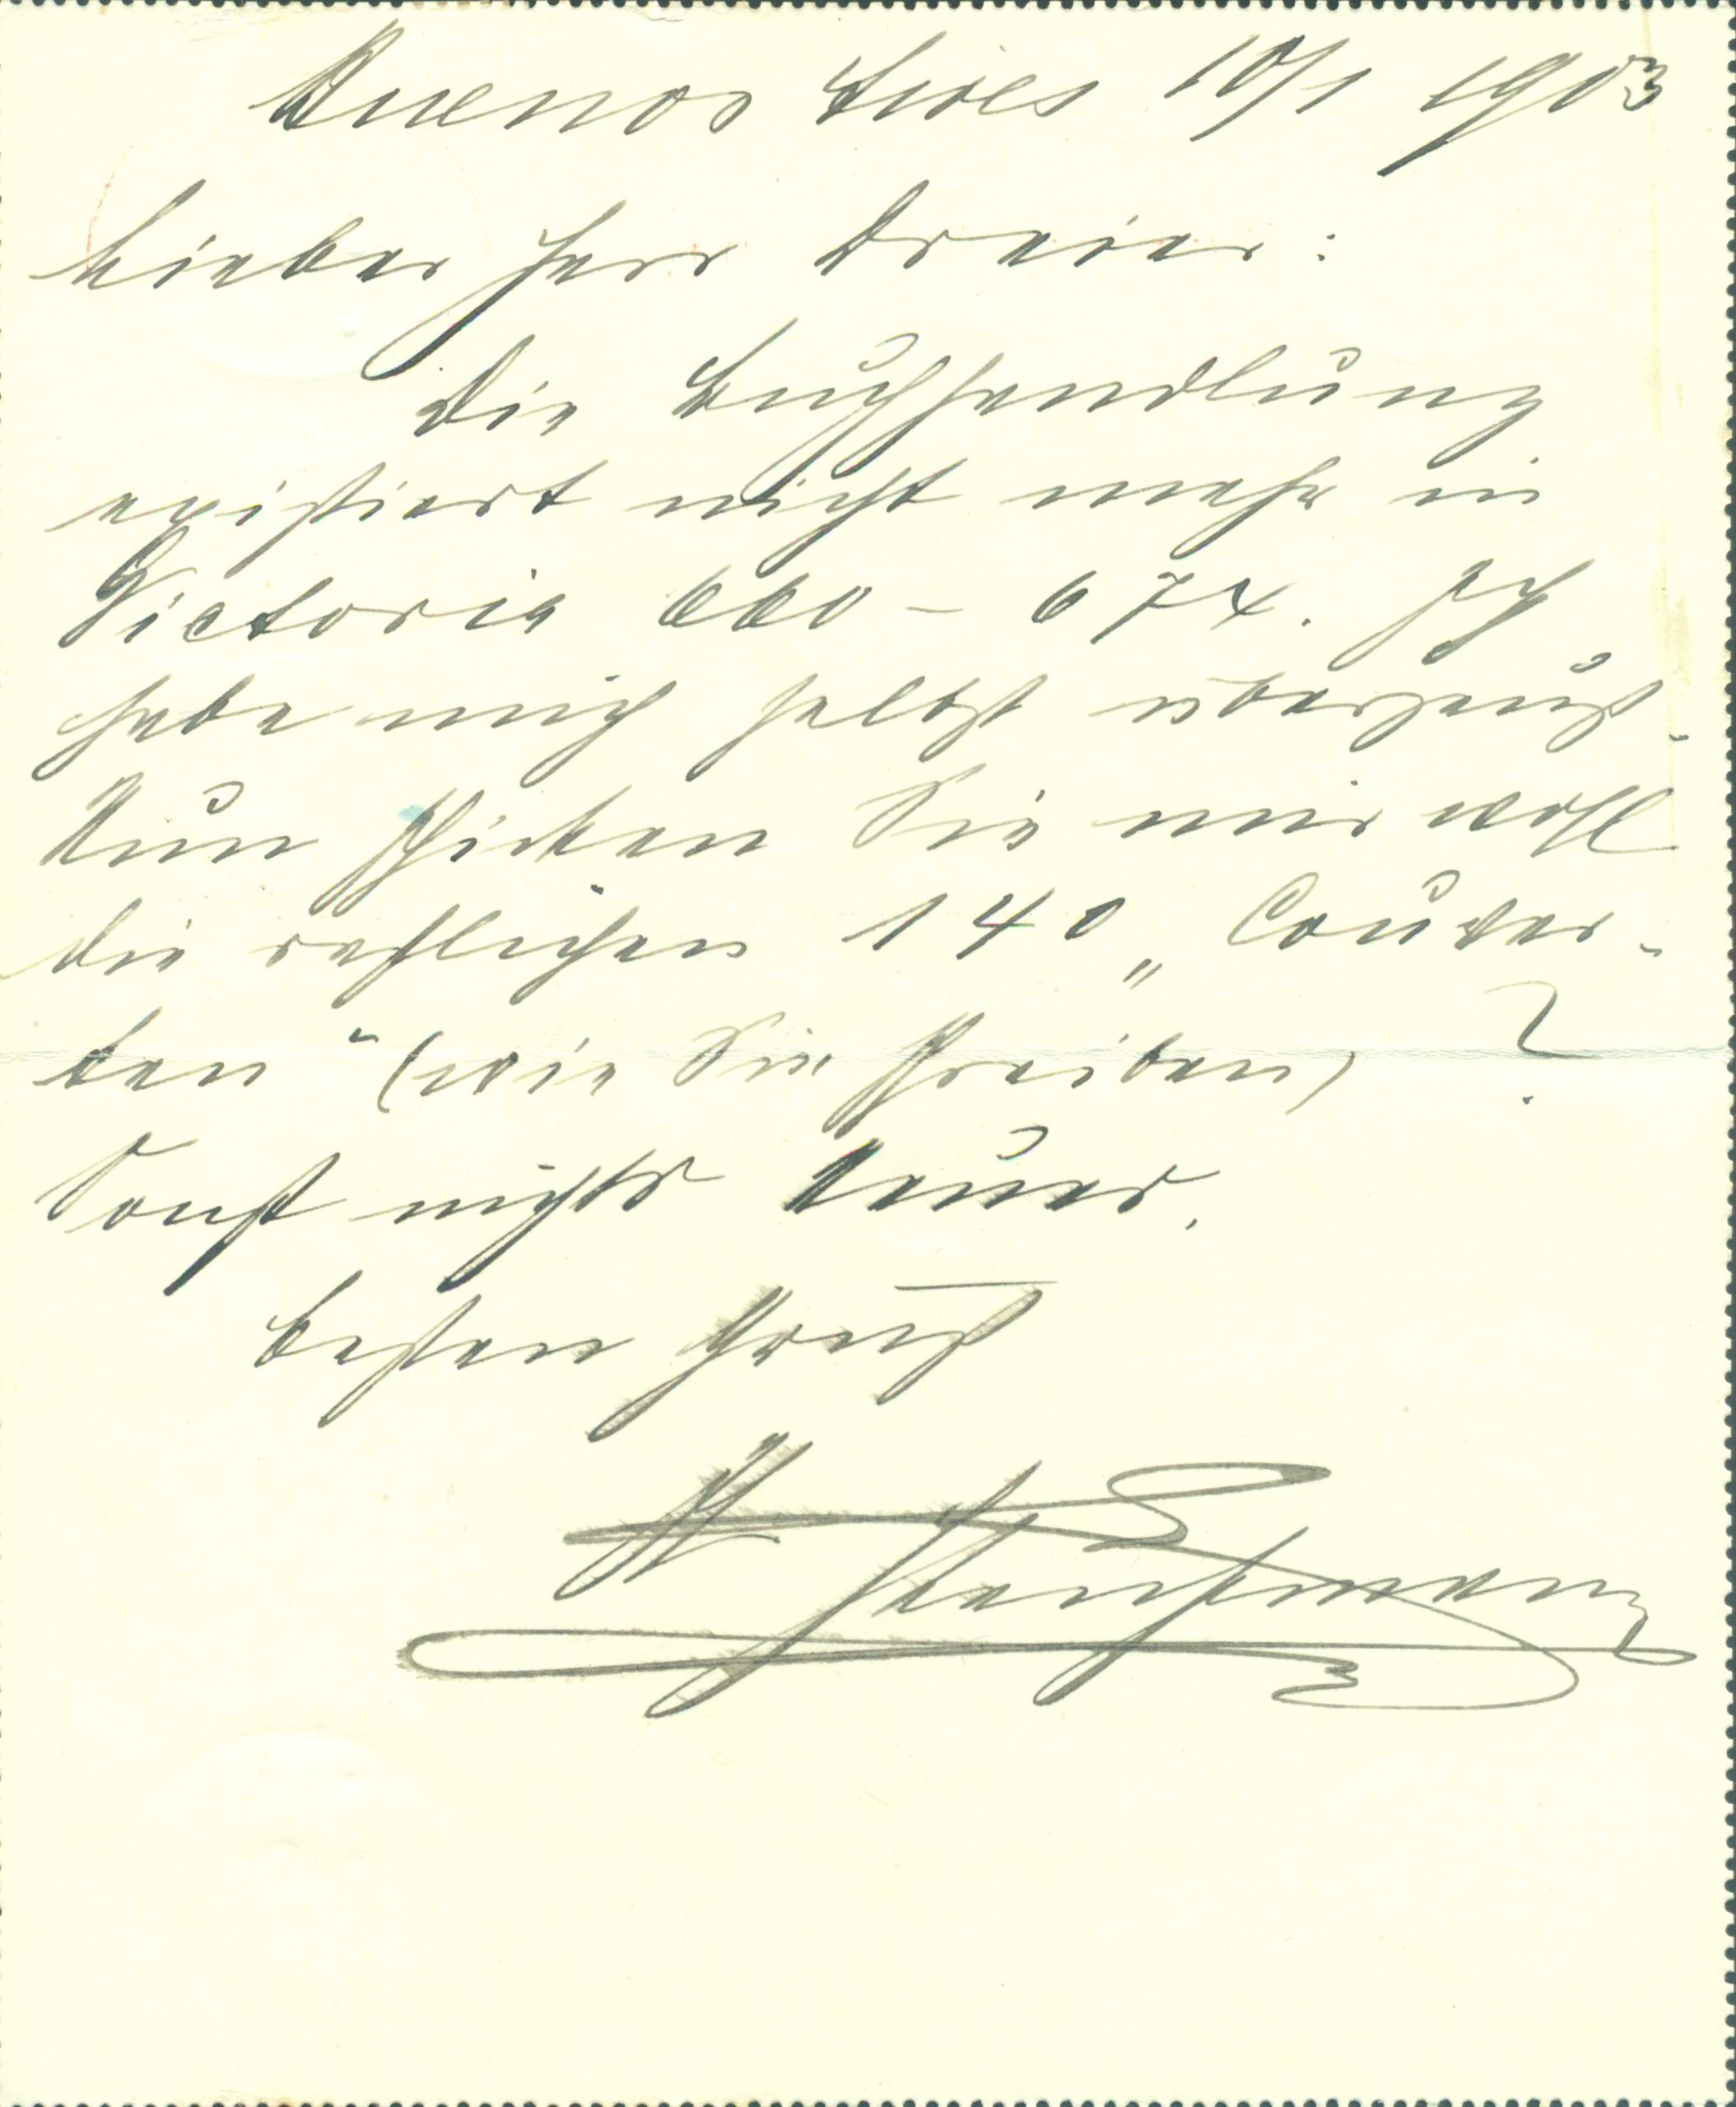 Buenos Aires 10/1 1903
Lieber Herr Dreier:
Die Buchhandlung
existiert nicht mehr in
Victoria 660 - 674. Ich
habe mich selbst überzeugt.
Nun schicken Sie mir wohl
die restlichen 140 „Couver-
ten“ (wie Sie schreiben) ?
Sonst nichts Neues.
Besten Gruß